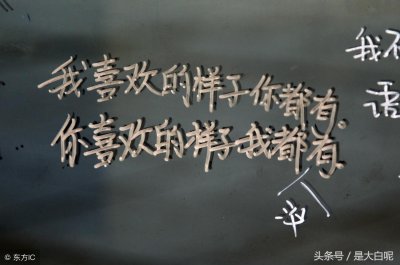 我喜欢的样子你都有.
你喜欢的样子我都有.
没
我
© 东方IC
头条号 / 是大白呢